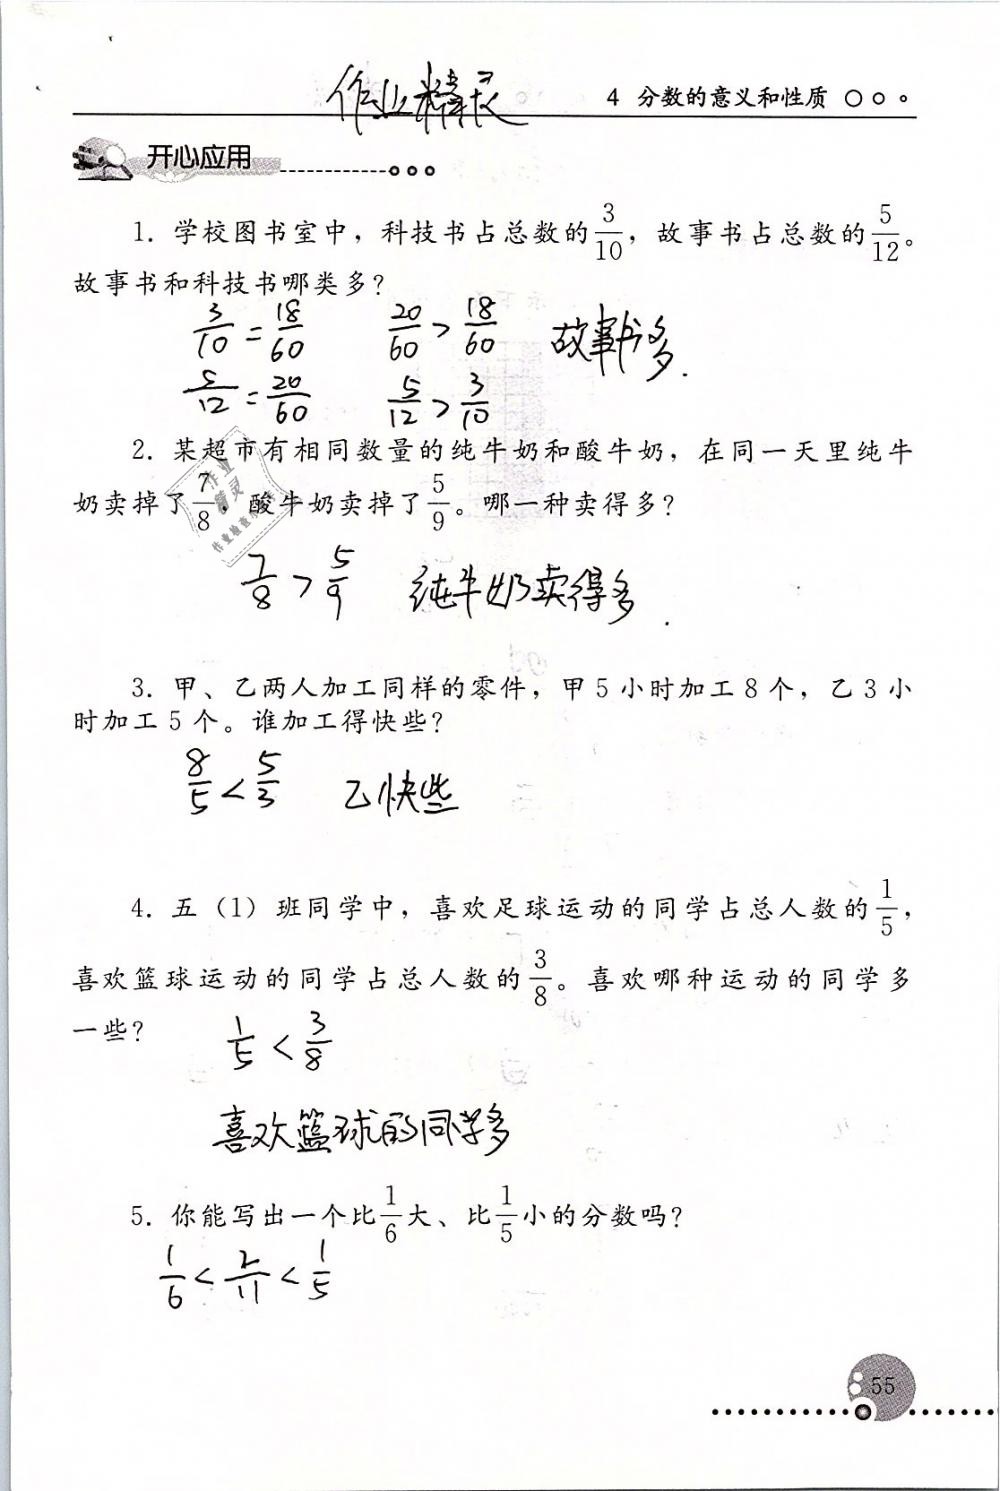 作业精灵
4 分数的意义和性质
开心应用
1. 学校图书室中，科技书占总数的3/10，故事书占总数的5/12。
故事书和科技书哪类多？
3/10=18/60 20/60>18/60 故事书多.
5/12=20/60 5/12>3/10
2. 某超市有相同数量的纯牛奶和酸牛奶，在同一天里纯牛
奶卖掉了7/8，酸牛奶卖掉了5/9。哪一种卖得多？
作业
精灵
7/8>5/9 纯牛奶卖得多.
3. 甲、乙两人加工同样的零件，甲5小时加工8个，乙3小
时加工5个。谁加工得快些？
8/5<5/3 乙快些
4. 五（1）班同学中，喜欢足球运动的同学占总人数的1/5，
喜欢篮球运动的同学占总人数的3/8。喜欢哪种运动的同学多
一些？
1/5<3/8
喜欢篮球的同学多
5. 你能写出一个比1/6大、比1/5小的分数吗？
1/6<2/11<1/5
55